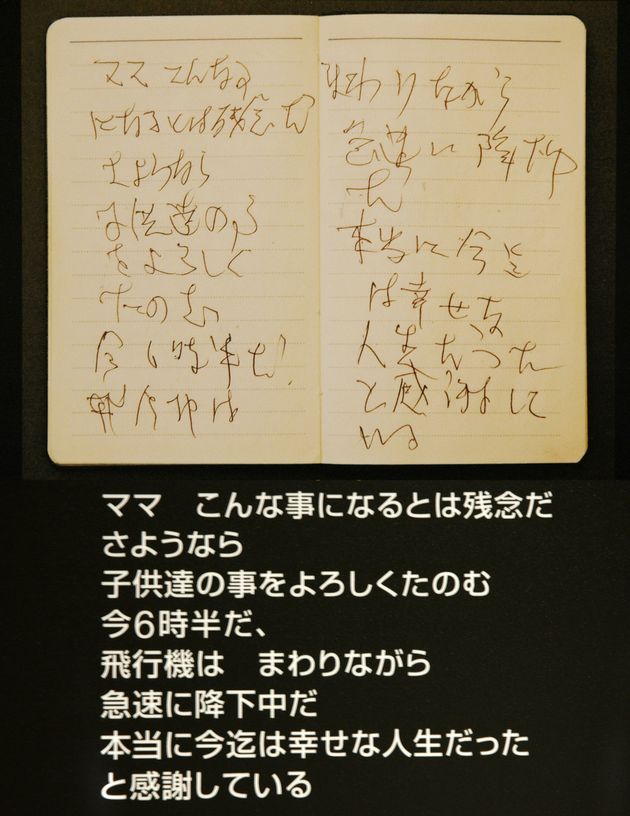 ママ こんな事
になるとは残念だ
さようなら
子供達の事
をよろしく
たのむ
今6時半だ、
飛行機は
まわりながら
急速に降下中
だ
本当に今迄
は幸せな
人生だった
と感謝して
いる
ママ　こんな事になるとは残念だ
さようなら
子供達の事をよろしくたのむ
今6時半だ、
飛行機は　まわりながら
急速に降下中だ
本当に今迄は幸せな人生だった
と感謝している